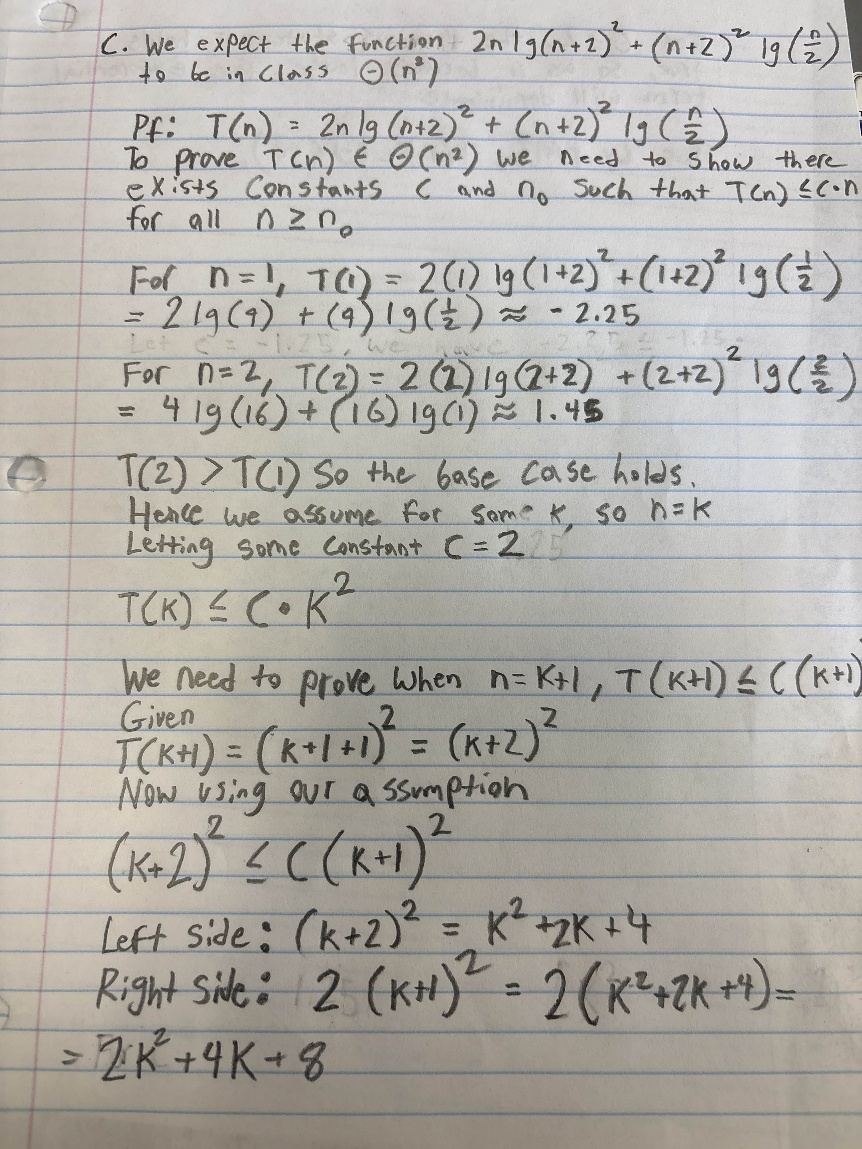 C. We expect the function 2n lg(n+2)² + (n+2)² lg(n/2)
to be in class Θ(n²)
Pf: T(n) = 2n lg (n+2)² + (n+2)² lg(n/2)
To prove T(n) ∈ Θ(n²) we need to show there
exists constants C and n₀ such that T(n) ≤ C·n
for all n ≥ n₀
For n=1, T(1) = 2(1) lg(1+2)² + (1+2)² lg(1/2)
= 2 lg(9) + (9) lg(1/2) ≈ -2.25
Let C = -1.25, we have -2.25 ≤ -1.25
For n=2, T(2) = 2(2) lg(2+2) + (2+2)² lg(2/2)
= 4 lg(16) + (16) lg(1) ≈ 1.45
T(2) > T(1) So the base case holds.
Hence we assume for some K, so n=K
Letting some constant C = 2
T(K) ≤ C·K²
We need to prove when n=K+1, T(K+1) ≤ C(K+1)
Given
T(K+1) = (K+1+1)² = (K+2)²
Now using our assumption
(K+2)² ≤ C(K+1)²
Left side: (K+2)² = K²+2K+4
Right side: 2 (K+1)² = 2(K²+2K+4)=
= 2K²+4K+8